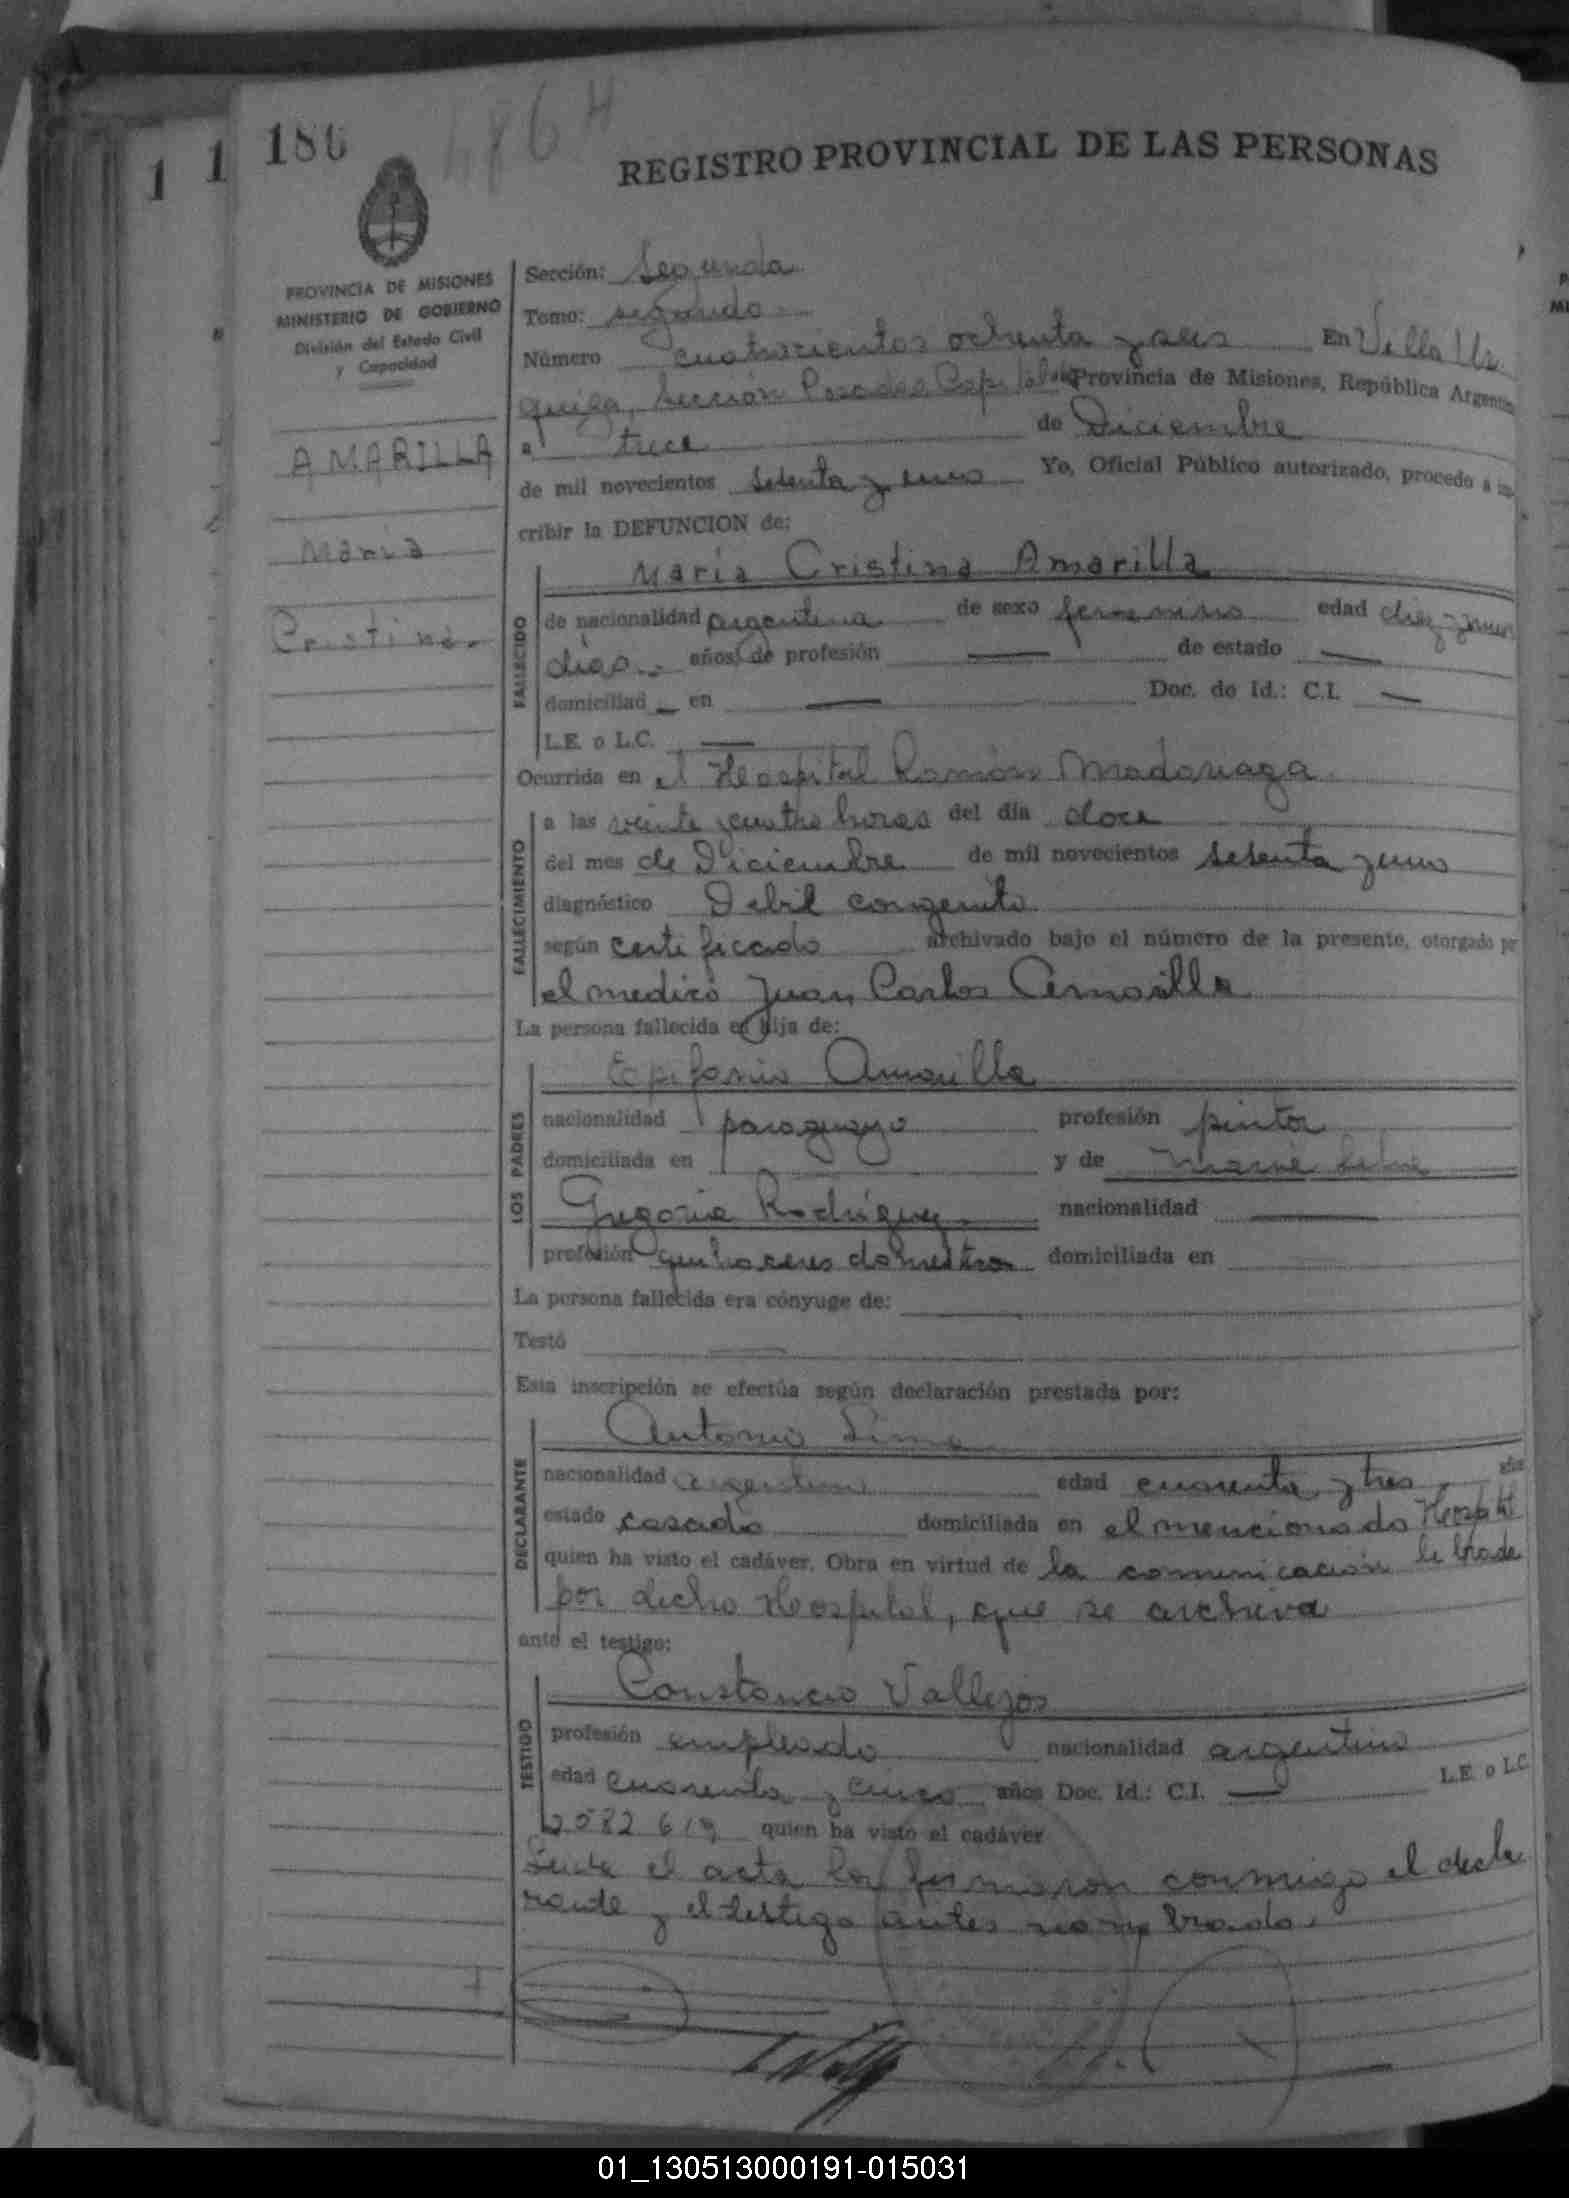 186
486 H
1 1
REGISTRO PROVINCIAL DE LAS PERSONAS
PROVINCIA DE MISIONES
MINISTERIO DE GOBIERNO
División del Estado Civil
y Capacidad
AMARILLA
Maria
Cristina.
Sección: Segunda
Tomo: segundo
Número cuatrocientos ochenta y seis En Villa Ur
quiza, Sección Posadas Capital Provincia de Misiones, República Argentina
a trece de Diciembre
de mil novecientos setenta y uno Yo, Oficial Público autorizado, procedo a ins
cribir la DEFUNCION de:
María Cristina Amarilla
FALLECIDO
de nacionalidad argentina de sexo femenino edad diez y nueve
días años, de profesión — de estado —
domiciliad — en — Doc. de Id.: C.I. —
L.E. o L.C. —
Ocurrida en el Hospital Ramón Madariaga
FALLECIMIENTO
a las veinte y cuatro horas del día doce
del mes de Diciembre de mil novecientos setenta y uno
diagnóstico Debil congenito
según certificado archivado bajo el número de la presente, otorgado por
el medico Juan Carlos Amarilla
La persona fallecida er hija de:
LOS PADRES
Epifanio Amarilla
nacionalidad paraguayo profesión pintor
domiciliada en y de
Gregoria Rodríguez. nacionalidad —
profesión quehaceres domesticos domiciliada en
La persona fallecida era cónyuge de:
Testó —
Esta inscripción se efectúa según declaración prestada por:
DECLARANTE
Antonio Lima
nacionalidad argentino edad cuarenta y tres años
estado casado domiciliada en el mencionado Hospital
quien ha visto el cadáver. Obra en virtud de la comunicación librada
por dicho Hospital, que se archiva
ante el testigo:
TESTIGO
Constancio Vallejos
profesión empleado nacionalidad argentino
edad cuarenta y cinco años Doc. Id.: C.I. — L.E. o L.C.
2582619 quien ha visto el cadáver
el acta la firmaron conmigo el decla
rante y el testigo antes nombrado.
01_130513000191-015031